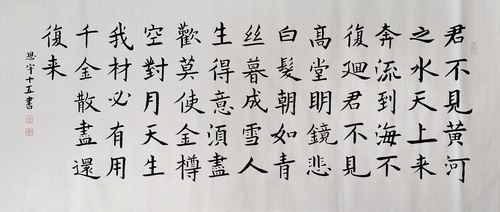 君不見黃河
之水天上来
奔流到海不
復迴君不見
髙堂明鏡悲
白髮朝如青
丝暮成雪人
生得意須盡
歡莫使金樽
空對月天生
我材必有用
千金散盡還
復来
宇十五書